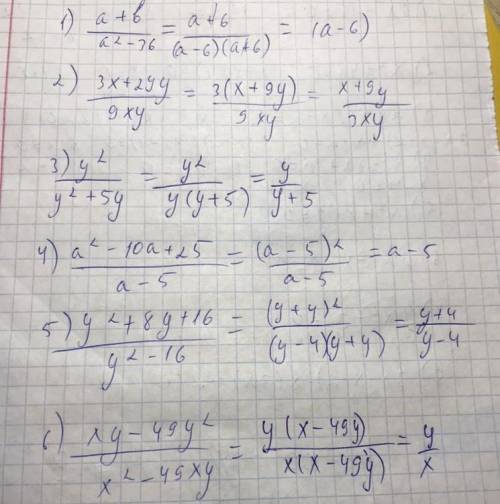 1) (a+6)/(a²-36) = (a+6)/((a-6)(a+6)) = (a-6)
2) (3x+27y)/(9xy) = 3(x+9y)/(9xy) = (x+9y)/(3xy)
3) y²/(y²+5y) = y²/(y(y+5)) = y/(y+5)
4) (a²-10a+25)/(a-5) = (a-5)²/(a-5) = a-5
5) (y²+8y+16)/(y²-16) = (y+4)²/((y-4)(y+4)) = (y+4)/(y-4)
6) (xy-49y²)/(x²-49xy) = y(x-49y)/(x(x-49y)) = y/x